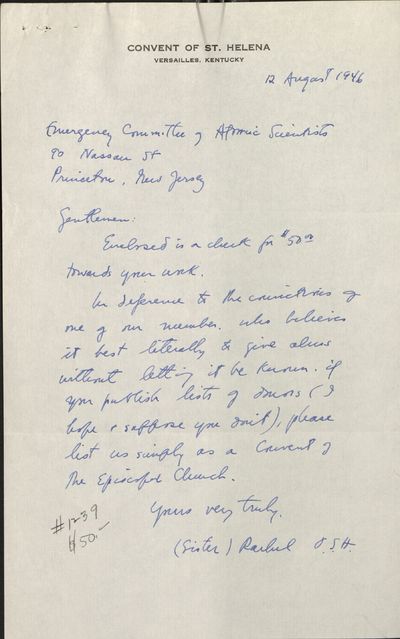 CONVENT OF ST. HELENA
VERSAILLES, KENTUCKY
12 August 1946
Emergency Committee of Atomic Scientists
90 Nassau St
Princeton, New Jersey
Gentlemen:
Enclosed is a check for $50.00
towards your work.
In deference to the convictions of
one of our number, who believes
it best literally to give alms
without letting it be known, if
you publish lists of donors (I
hope & suppose you don't), please
list us simply as a Convent of
the Episcopal Church.
Yours very truly,
(Sister) Rachel O.S.H.
#1239
$50.-